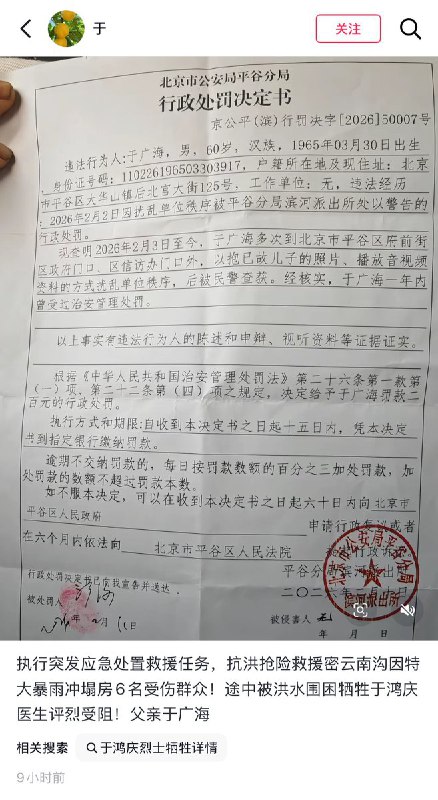 于
关注
北京市公安局平谷分局
行政处罚决定书
京公平(滨)行罚决字[2026]50007号
违法行为人:于广海,男,60岁,汉族,1965年03月30日出生
,身份证号码:110226196503303917,户籍所在地及现住址:北京
市平谷区大华山镇后北宫大街125号,工作单位:无,违法经历
:2026年2月2日因扰乱单位秩序被平谷分局滨河派出所处以警告的
行政处罚。
现查明2026年2月3日至今,于广海多次到北京市平谷区府前街
区政府门口、区信访办门口外,以抱已故儿子的照片、播放音视频
资料的方式扰乱单位秩序,后被民警查获。经核实,于广海一年内
曾受过治安管理处罚。
以上事实有违法行为人的陈述和申辩、视听资料等证据证实。
根据《中华人民共和国治安管理处罚法》第二十六条第一款第
(一)项、第二十二条第(四)项之规定,决定给予于广海罚款二
百元的行政处罚。
执行方式和期限:自收到本决定书之日起十五日内,凭本决定
书到指定银行缴纳罚款。
逾期不交纳罚款的,每日按罚款数额的百分之三加处罚款,加
处罚款的数额不超过罚款本数。
如不服本决定,可以在收到本决定书之日起六十日内向 北京市
平谷区人民政府
申请行政复议或者
在六个月内依法向 北京市平谷区人民法院
平谷分局滨河派出所
行政处罚决定书已向我宣告并送达。
被处罚人
年 月 日
被侵害人 无
年 月 日
执行突发应急处置救援任务,抗洪抢险救援密云南沟因特
大暴雨冲塌房6名受伤群众!途中被洪水围困牺牲于鸿庆
医生评烈受阻!父亲于广海
相关搜索
于鸿庆烈士牺牲详情
9小时前